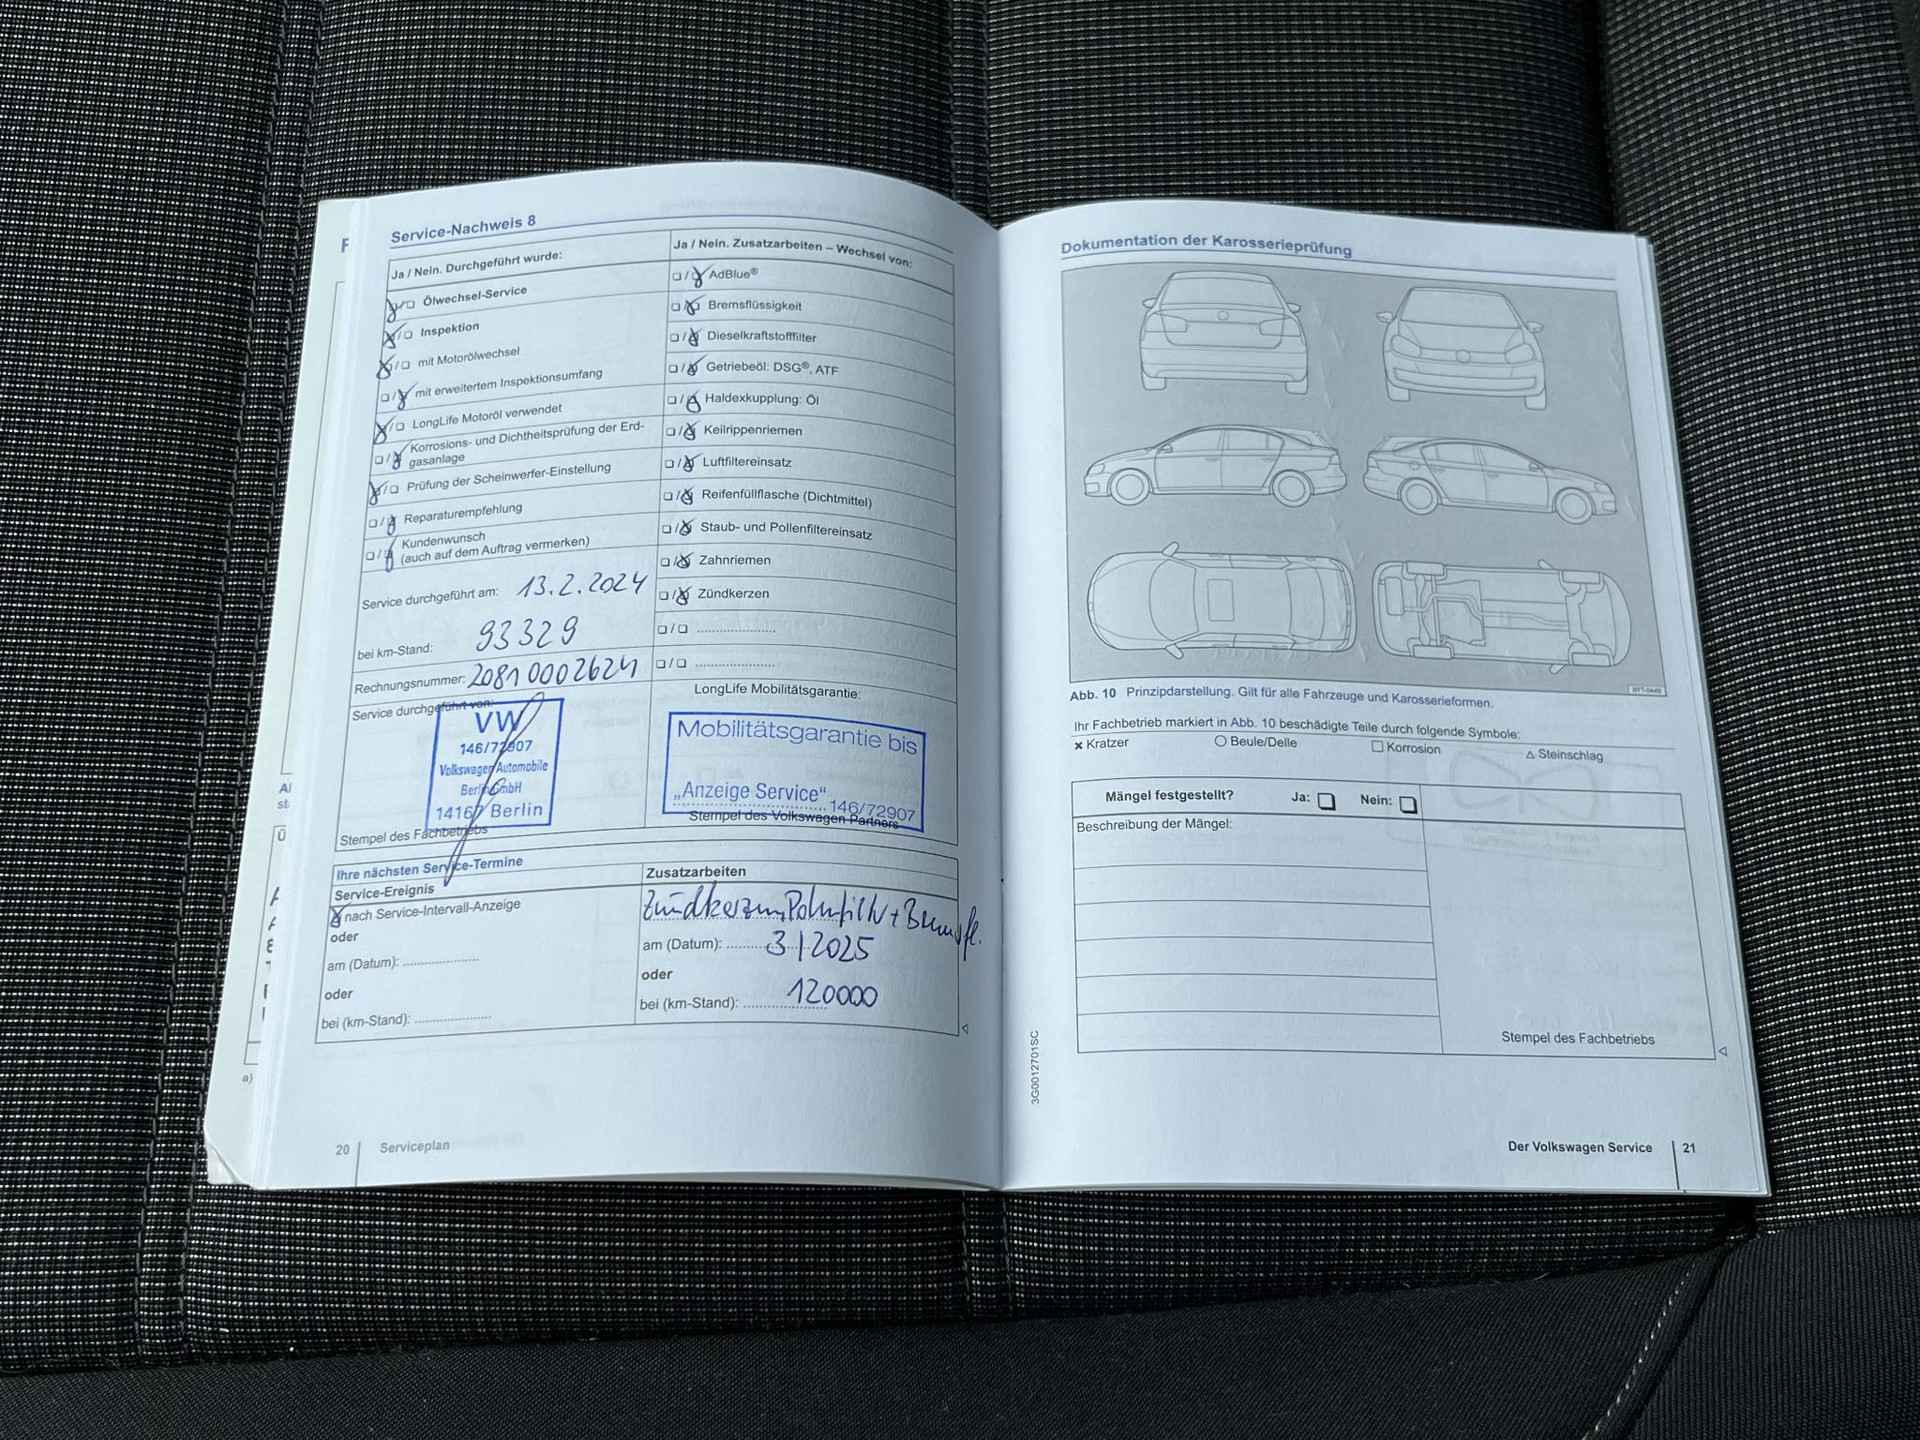 Service-Nachweis 8
Ja / Nein. Durchgeführt wurde:
Ölwechsel-Service
Inspektion
mit Motorölwechsel
mit erweitertem Inspektionsumfang
LongLife Motoröl verwendet
Korrosions- und Dichtheitsprüfung der Erd-
gasanlage
Prüfung der Scheinwerfer-Einstellung
Reparaturempfehlung
Kundenwunsch
(auch auf dem Auftrag vermerken)
Service durchgeführt am: 13.2.2024
bei km-Stand: 93329
Rechnungsnummer: 20810002624
Service durchgeführt von:
VW
146/72907
Volkswagen Automobile
Berlin GmbH
14167 Berlin
Stempel des Fachbetriebs
Ja / Nein. Zusatzarbeiten – Wechsel von:
AdBlue®
Bremsflüssigkeit
Dieselkraftstofffilter
Getriebeöl: DSG®, ATF
Haldexkupplung: Öl
Keilrippenriemen
Luftfiltereinsatz
Reifenfüllflasche (Dichtmittel)
Staub- und Pollenfiltereinsatz
Zahnriemen
Zündkerzen
LongLife Mobilitätsgarantie:
Mobilitätsgarantie bis
„Anzeige Service“
146/72907
Stempel des Volkswagen Partners
Ihre nächsten Service-Termine
Service-Ereignis
nach Service-Intervall-Anzeige
oder
am (Datum):
oder
bei (km-Stand):
Zusatzarbeiten
Zündkerzen, Pollenfilter + Bremsfl.
am (Datum): 3/2025
oder
bei (km-Stand): 120000
20 Serviceplan
Dokumentation der Karosserieprüfung
Abb. 10 Prinzipdarstellung. Gilt für alle Fahrzeuge und Karosserieformen.
Ihr Fachbetrieb markiert in Abb. 10 beschädigte Teile durch folgende Symbole:
Kratzer Beule/Delle Korrosion Steinschlag
Mängel festgestellt? Ja: Nein:
Beschreibung der Mängel:
Stempel des Fachbetriebs
3G0012701SC
Der Volkswagen Service 21